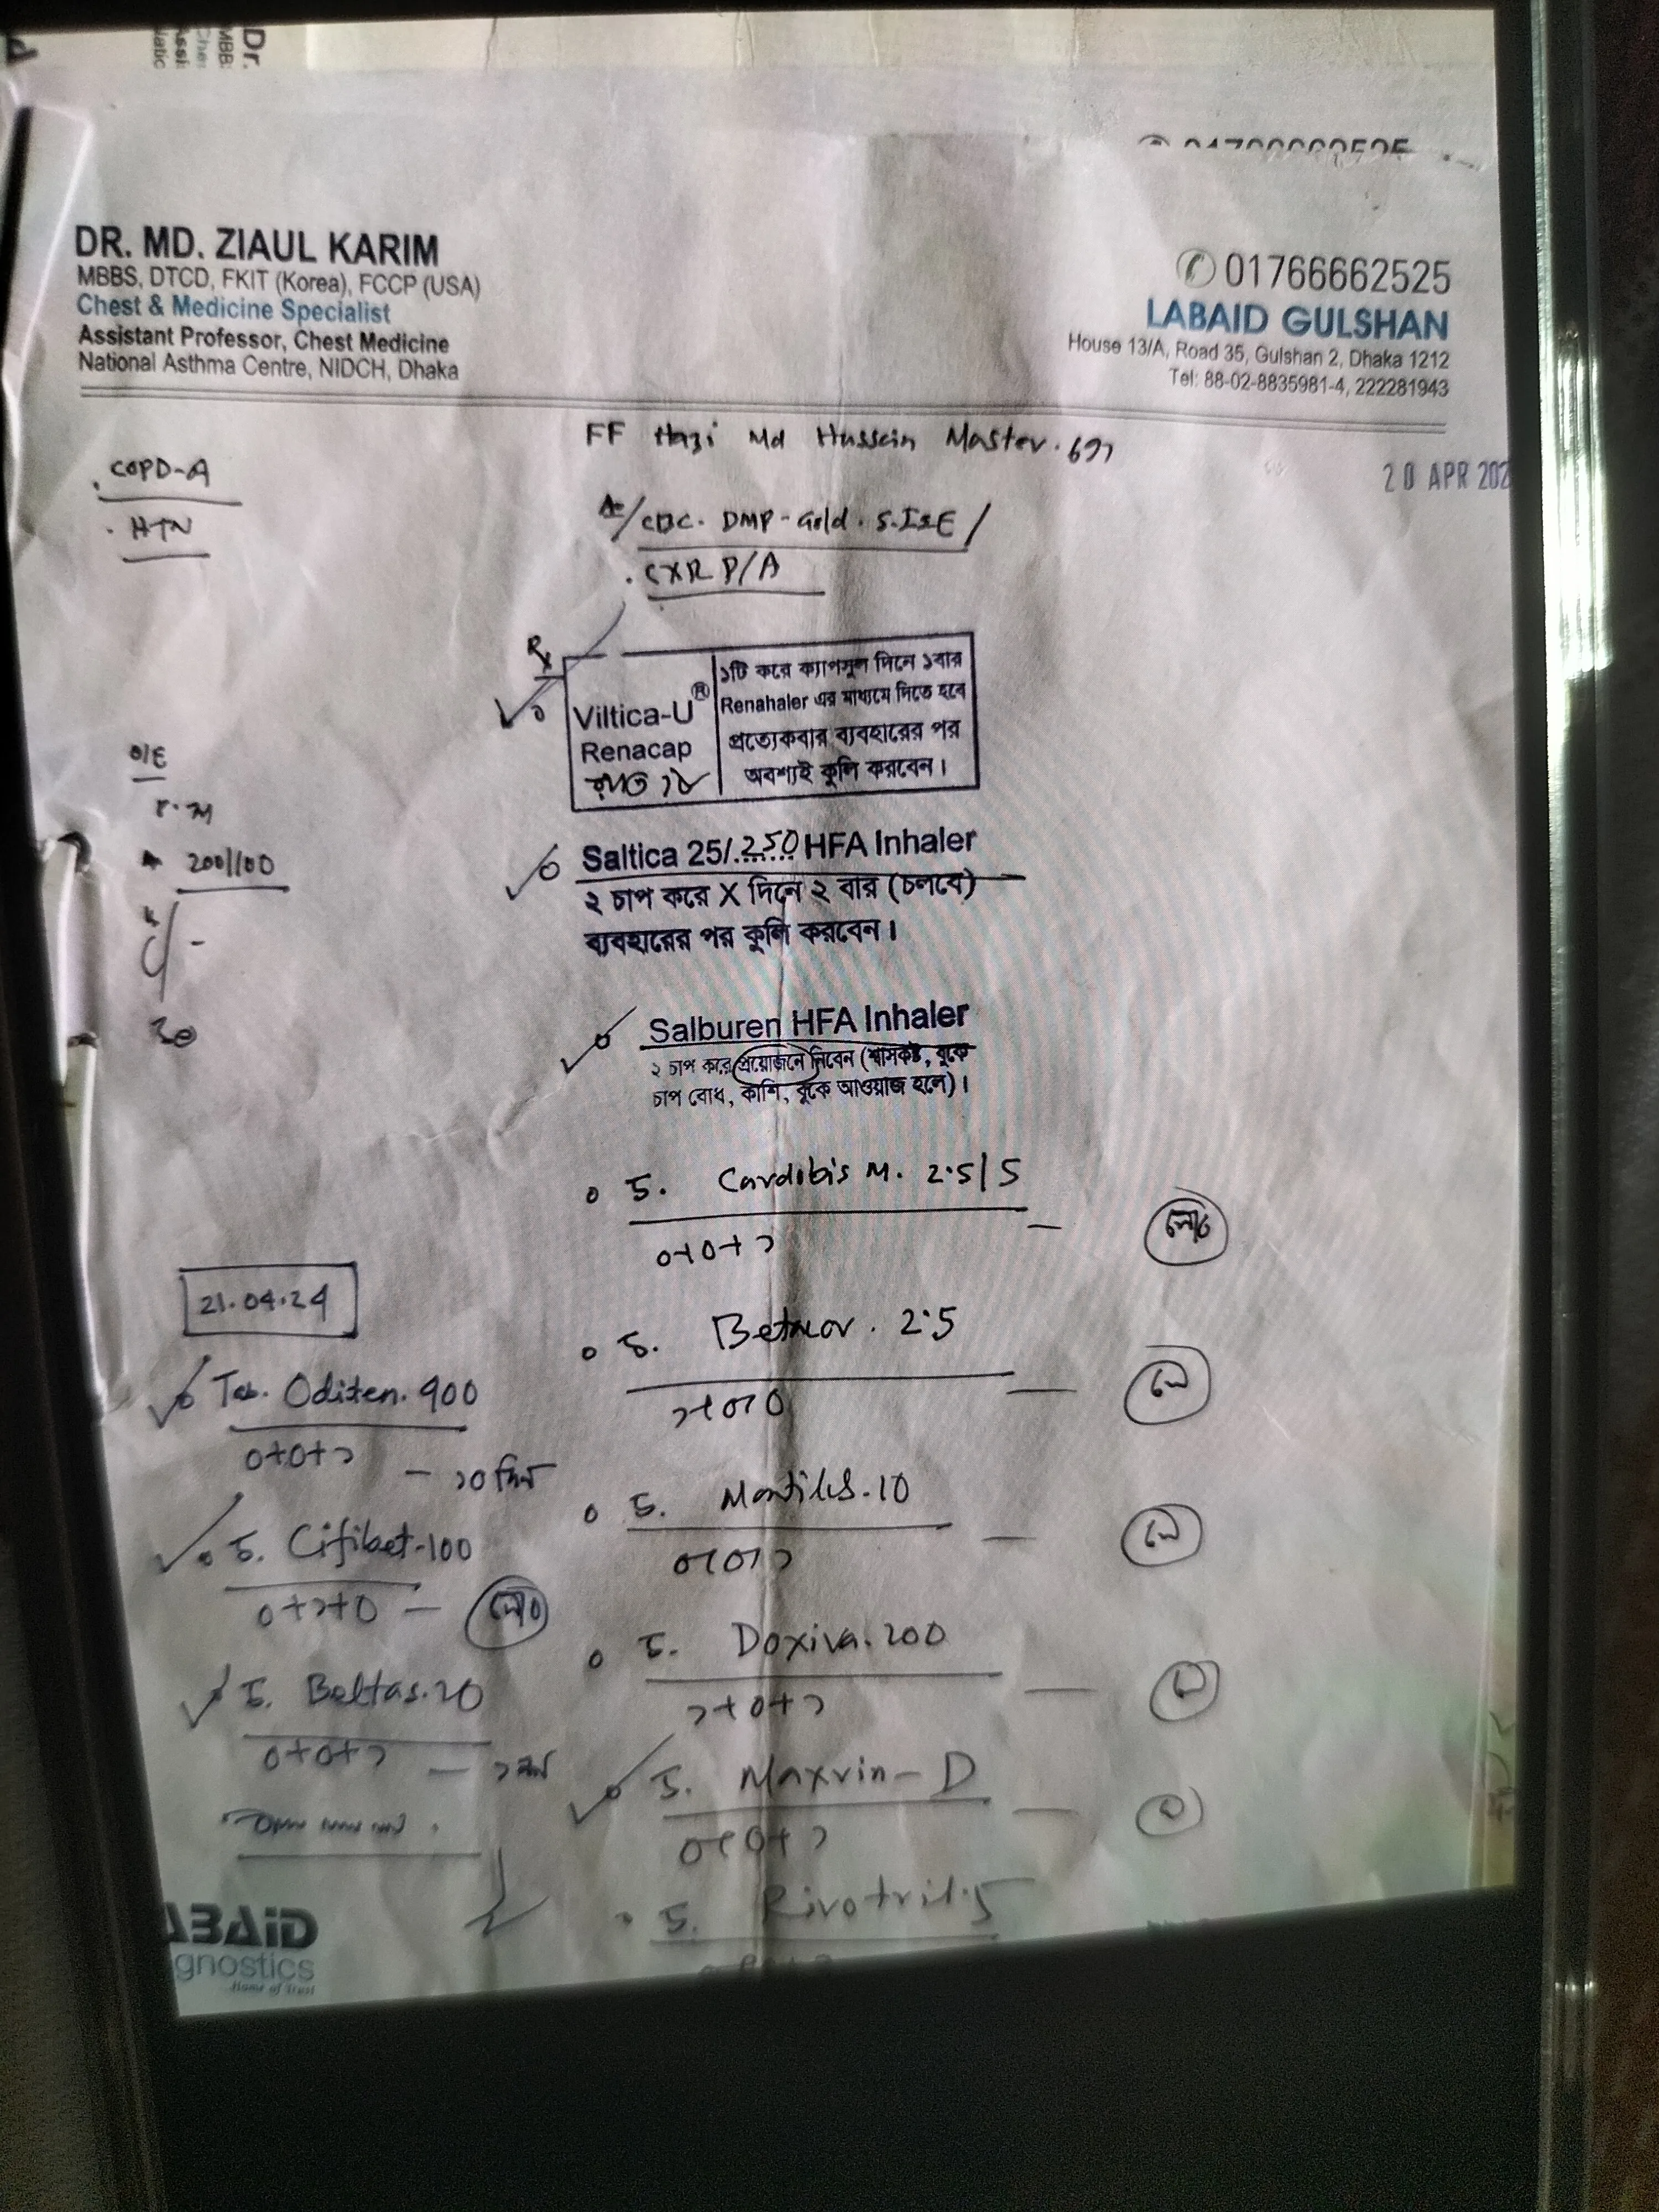 DR. MD. ZIAUL KARIM
MBBS, DTCD, FKIT (Korea), FCCP (USA)
Chest & Medicine Specialist
Assistant Professor, Chest Medicine
National Asthma Centre, NIDCH, Dhaka
01766662525
LABAID GULSHAN
House 13/A, Road 35, Gulshan 2, Dhaka 1212
Tel: 88-02-8835981-4, 222281943
FF Hazi Md Hussein Master.
20 APR 202
COPD-A
HTN
CBC. DMP-Gold. S.IgE /
CXR P/A
Rx
Viltica-U®
Renacap
১টি করে ক্যাপসুল দিনে ১বার
Renahaler এর মাধ্যমে নিতে হবে
প্রত্যেকবার ব্যবহারের পর
অবশ্যই কুলি করবেন।
O/E
200/100
Saltica 25/.250 HFA Inhaler
২ চাপ করে X দিনে ২ বার (চলবে)
ব্যবহারের পর কুলি করবেন।
Salburen HFA Inhaler
২ চাপ করে প্রয়োজনে নিবেন (শ্বাসকষ্ট, বুকে
চাপ বোধ, কাশি, বুকে আওয়াজ হলে)।
T. Cardobis M. 2.5/5
0+0+১
T. Betacor. 2.5
১+0+0
T. Montilus.10
0+0+১
T. Doxiva.200
১+0+১
T. Maxvin-D
0+0+১
T. Rivotril.5
21.04.24
Tab. Odixen.400
0+0+১ — ১০ দিন
T. Cifibet-100
0+১+0 —
T. Beltas.20
0+0+১ —
ABAiD
gnostics
Home of Trust